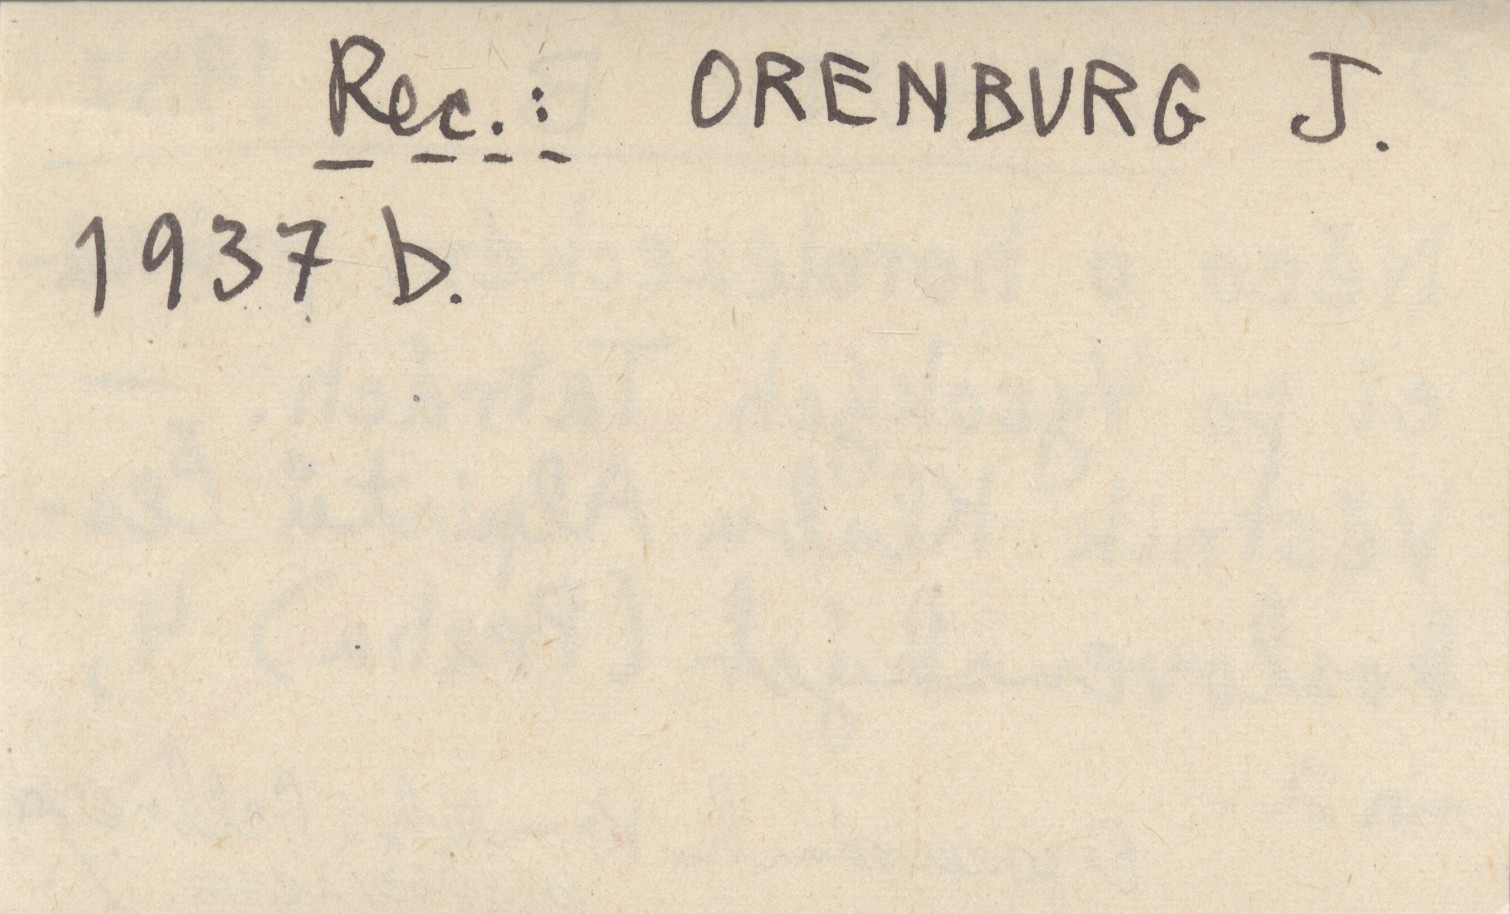 Rec.: ORENBURG J.
1937 b.